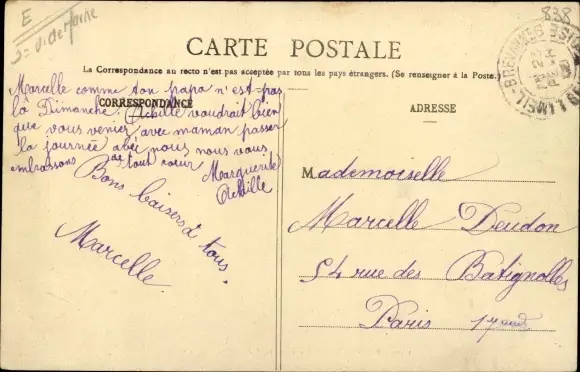 E
838
CARTE POSTALE
La Correspondance au recto n'est pas acceptée par tous les pays étrangers. (Se renseigner à la Poste.)
CORRESPONDANCE
Marcelle comme ton papa n'est pas
là Dimanche. Achille voudrait bien
que vous veniez avec maman passer
la journée avec nous nous vous
embrassons de tout cœur
Marguerite
Achille
Bons baisers à tous.
Marcelle
ADRESSE
Mademoiselle
Marcelle Deudon
54 rue des Batignolles
Paris 17
LIMEIL-BREVANNES